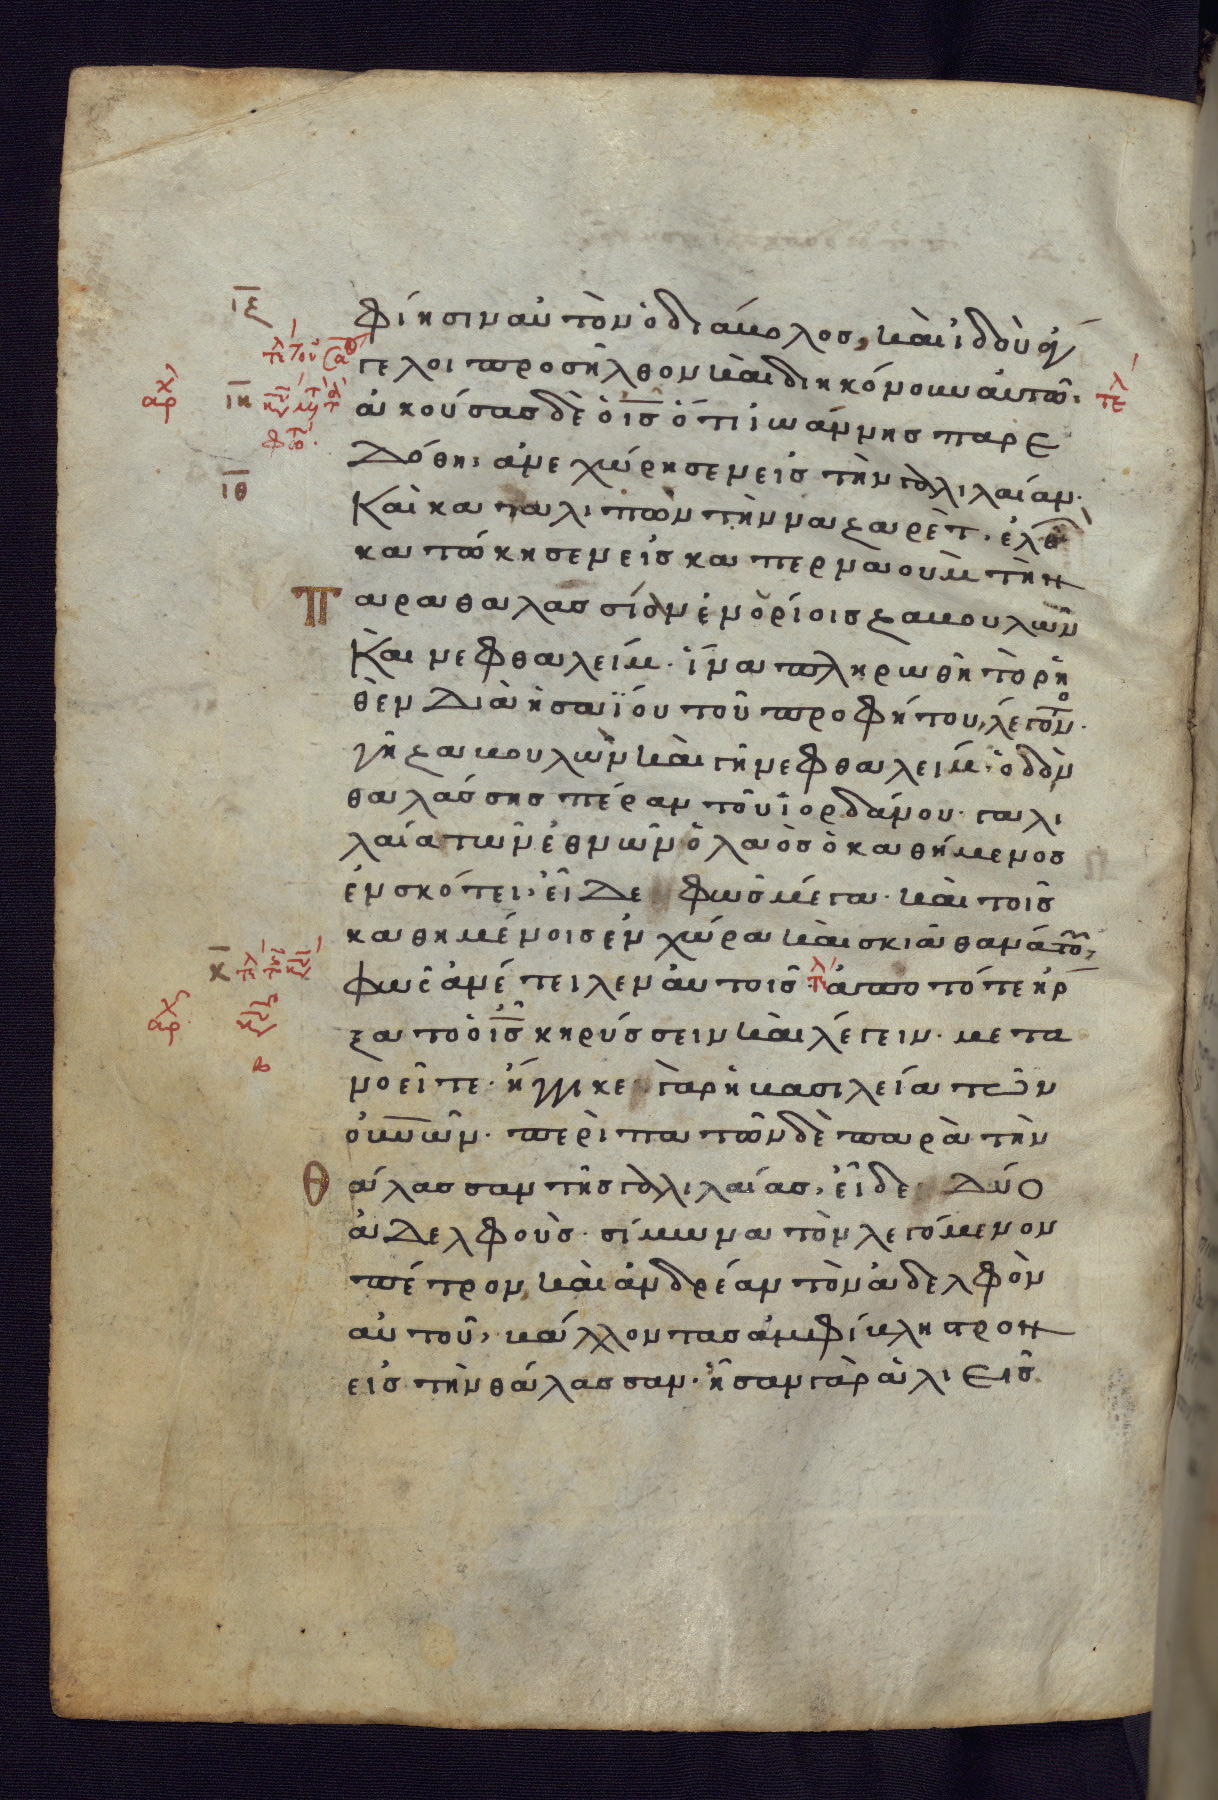 φίησιν αὐτὸν ὁ διάβολος, καὶ ἰδοὺ ἄγ
γελοι προσῆλθον καὶ διηκόνουν αὐτῶ·
ἀκούσας δὲ ὁ ις ὅτι ἰωάννης παρε
δόθη, ἀνεχώρησεν εἰς τὴν γαλιλαίαν·
Καὶ καταλιπὼν τὴν ναζαρὲτ, ἐλθὼ
κατώκησεν εἰς καπερναοὺμ τὴν
Παραθαλασσίαν ἐν ὁρίοις ζαβουλὼν
Καὶ νεφθαλείμ· ἵνα πληρωθῆ τὸ ρη
θὲν Διὰ ἠσαΐου τοῦ προφήτου, λέγοντο
γῆ ζαβουλὼν καὶ γῆ νεφθαλείμ, ὁδὸν
θαλάσσης πέραν τοῦ ἰορδάνου· γαλι
λαία τῶν ἐθνῶν ὁ λαὸς ὁ καθήμενος
ἐν σκότει, εἶδε φῶς μέγα· καὶ τοῖς
καθημένοις ἐν χώρα καὶ σκιᾶ θανάτου,
φῶς ἀνέτειλεν αὐτοῖς· τελ ἀπο τότε ἤρ
ξατο ὁ ις κηρύσσειν καὶ λέγειν· μετα
νοεῖτε· ἤγγικε γὰρ ἡ βασιλεία τῶν
οὐνῶν· περιπατῶν δὲ παρὰ τὴν
Θάλασσαν τῆς γαλιλαίας, εἶδε Δύο
ἀδελφοὺς· σίμωνα τὸν λεγόμενον
πέτρον, καὶ ἀνδρέαν τὸν ἀδελφὸν
αὐτοῦ, βάλλοντας ἀμφίβληστρον
εἰς τὴν θάλασσαν· ἦσαν γὰρ ἁλιεῖς
ιη
ιθ
κ
αρχ
αρχ
τελ